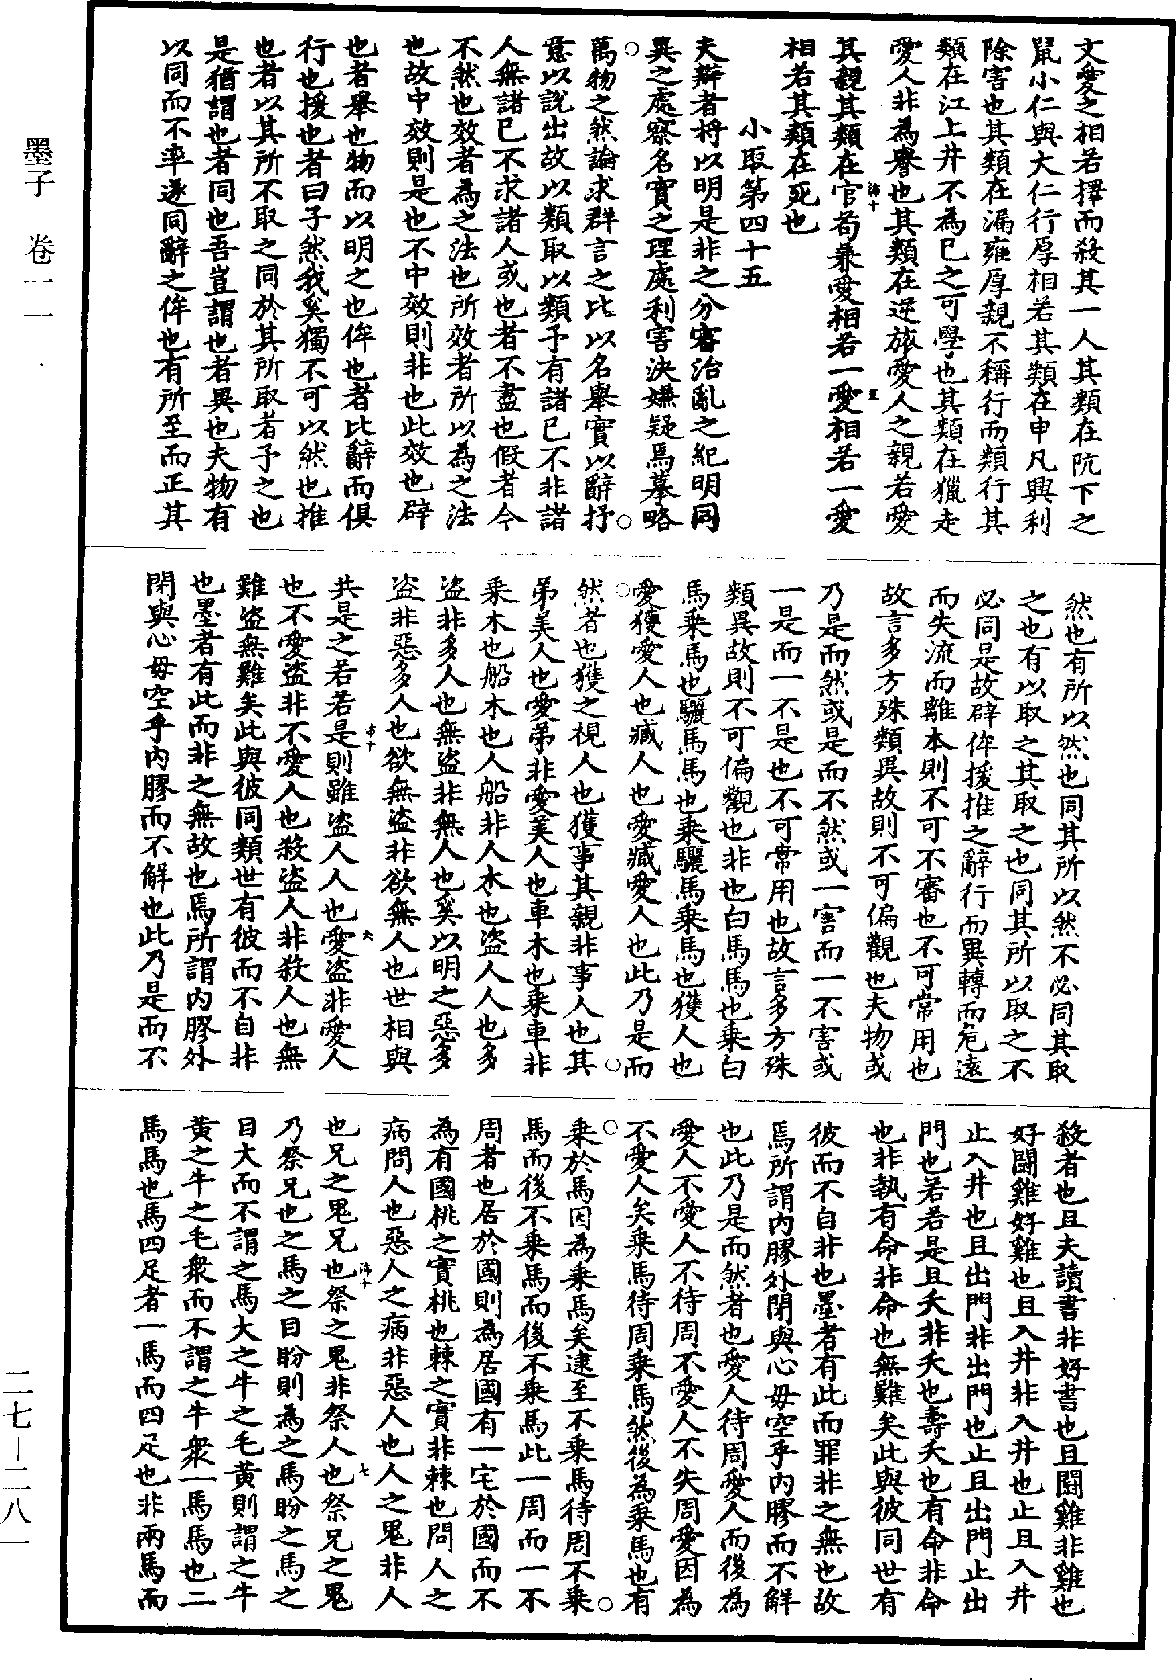 墨子 卷一一
文愛之相若擇而殺其一人其類在阬下之
鼠小仁與大仁行厚相若其類在申凡興利
除害也其類在漏雍厚親不稱行而類行其
類在江上井不為已之可學也其類在獵走
愛人非為譽也其類在逆旅愛人之親若愛
其親其類在官苟兼愛相若一愛相若一愛
相若其類在死也
小取第四十五
夫辯者將以明是非之分審治亂之紀明同
異之處察名實之理處利害決嫌疑焉摹略
萬物之然論求群言之比以名舉實以辭抒
意以說出故以類取以類予有諸已不非諸
人無諸已不求諸人或也者不盡也假者今
不然也效者為之法也所效者所以為之法
也故中效則是也不中效則非也此效也辟
也者舉也物而以明之也侔也者比辭而俱
行也援也者曰子然我奚獨不可以然也推
也者以其所不取之同於其所取者予之也
是猶謂也者同也吾豈謂也者異也夫物有
以同而不率遂同辭之侔也有所至而正其
然也有所以然也同其所以然不必同其取
之也有以取之其取之也同其所以取之不
必同是故辟侔援推之辭行而異轉而危遠
而失流而離本則不可不審也不可常用也
故言多方殊類異故則不可偏觀也夫物或
乃是而然或是而不然或一害而一不害或
一是而一不是也不可常用也故言多方殊
類異故則不可偏觀也非也白馬馬也乘白
馬乘馬也驪馬馬也乘驪馬乘馬也獲人也
愛獲愛人也臧人也愛臧愛人也此乃是而
然者也獲之視人也獲事其親非事人也其
弟美人也愛弟非愛美人也車木也乘車非
乘木也船木也人船非人木也盜人人也多
盜非多人也無盜非無人也奚以明之惡多
盜非惡多人也欲無盜非欲無人也世相與
共是之若若是則雖盜人人也愛盜非愛人
也不愛盜非不愛人也殺盜人非殺人也無
難盜無難矣此與彼同類世有彼而不自非
也墨者有此而非之無故也焉所謂內膠外
閉與心毋空乎內膠而不解也此乃是而不
殺者也且夫讀書非好書也且鬭雞非雞也
好鬭雞好雞也且入井非入井也止且入井
止入井也且出門非出門也止且出門止出
門也若若是且夭非夭也壽夭也有命非命
也非執有命非命也無難矣此與彼同世有
彼而不自非也墨者有此而罪非之無也故
焉所謂內膠外閉與心毋空乎內膠而不解
也此乃是而然者也愛人待周愛人而後為
愛人不愛人不待周不愛人不失周愛因為
不愛人矣乘馬待周乘馬然後為乘馬也有
乘於馬因為乘馬矣逮至不乘馬待周不乘
馬而後不乘馬而後不乘馬此一周而一不
周者也居於國則為居國有一宅於國而不
為有國桃之實桃也棘之實非棘也問人之
病問人也惡人之病非惡人也人之鬼非人
也兄之鬼兄也祭之鬼非祭人也祭兄之鬼
乃祭兄也之馬之目盼則為之馬盼之馬之
目大而不謂之馬大之牛之毛黃則謂之牛
黃之牛之毛衆而不謂之牛衆一馬馬也二
馬馬也馬四足者一馬而四足也非兩馬而
二七—二八一